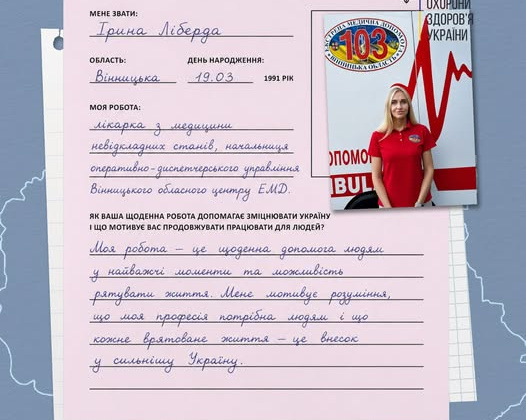 ОХОРОНИ
ЗДОРОВ'Я
УКРАЇНИ
МЕНЕ ЗВАТИ:
Ірина Ліберда
ОБЛАСТЬ:
ДЕНЬ НАРОДЖЕННЯ:
Вінницька
19.03
1991 РІК
МОЯ РОБОТА:
лікарка з медицини
невідкладних станів, начальниця
оперативно-диспетчерського управління
Вінницького обласного центру ЕМД.
ЕКСТРЕНА МЕДИЧНА ДОПОМОГА
103
ВІННИЦЬКА ОБЛАСТЬ
ОПОМО
MBUL
ЯК ВАША ЩОДЕННА РОБОТА ДОПОМАГАЄ ЗМІЦНЮВАТИ УКРАЇНУ
І ЩО МОТИВУЄ ВАС ПРОДОВЖУВАТИ ПРАЦЮВАТИ ДЛЯ ЛЮДЕЙ?
Моя робота – це щоденна допомога людям
у найважчі моменти та можливість
рятувати життя. Мене мотивує розуміння,
що моя професія потрібна людям і що
кожне врятоване життя – це внесок
у сильнішу Україну.